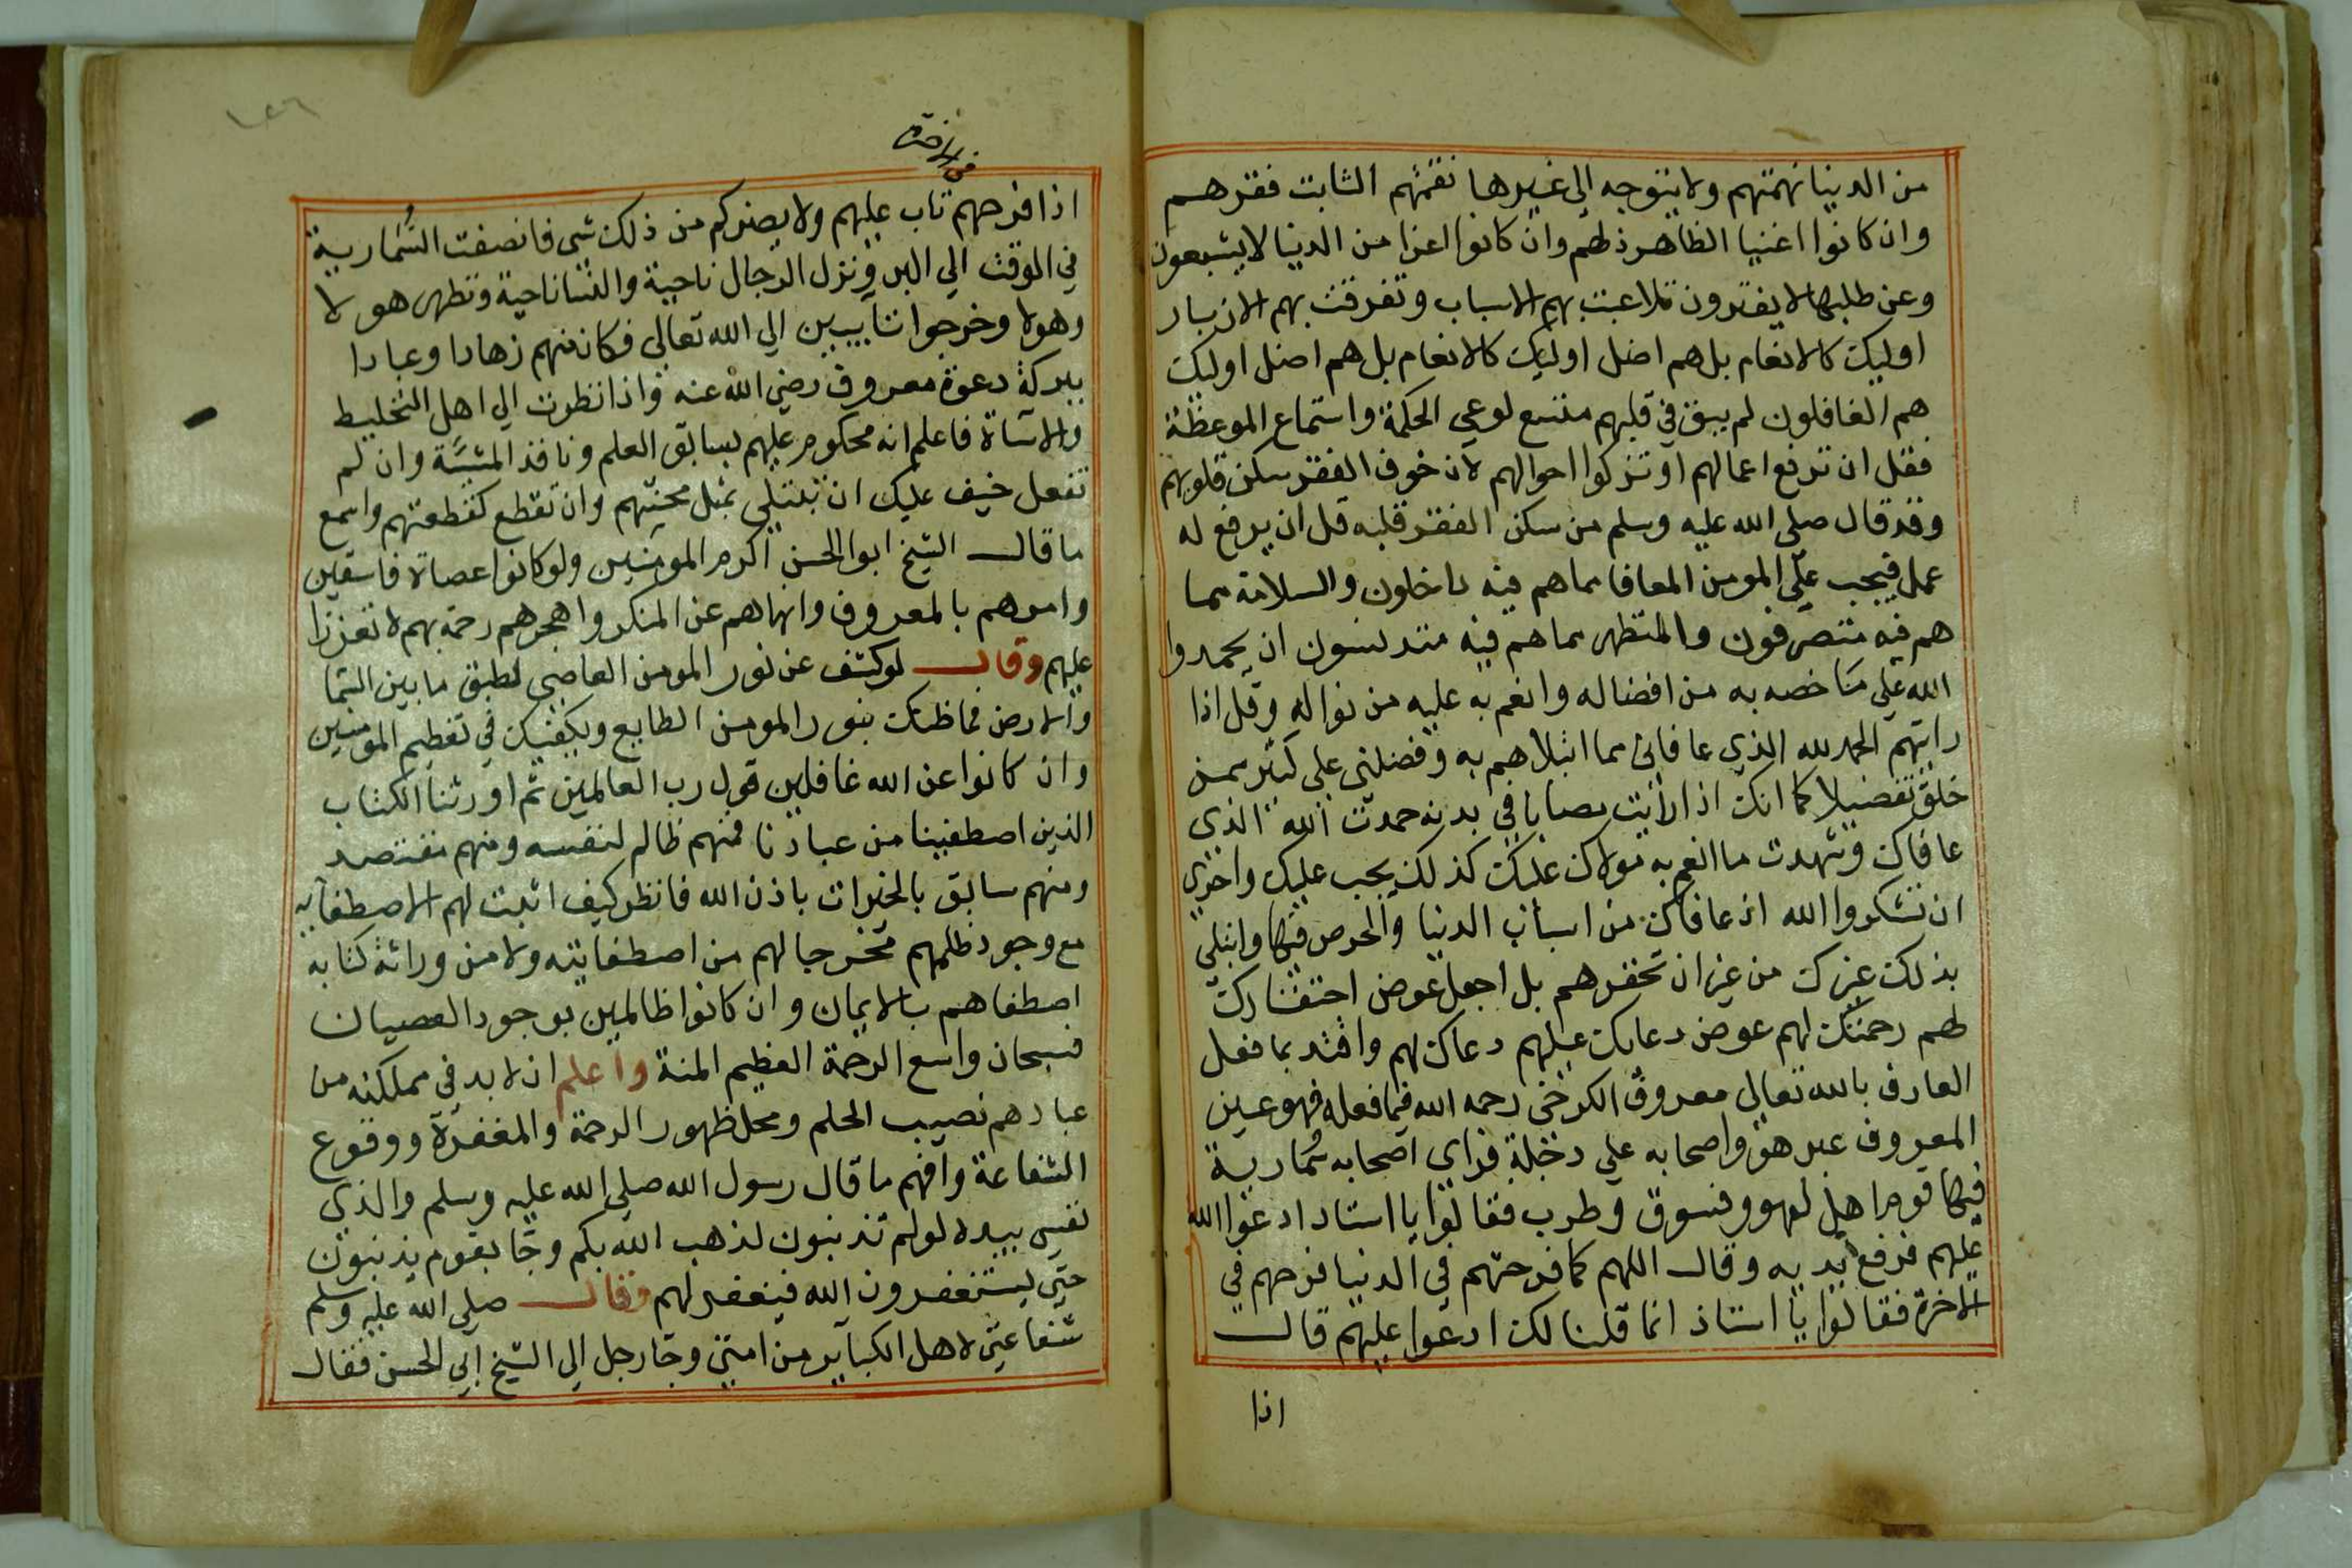 من الدنيا نهمتهم ولا يتوجه الي غيرها نقمتهم الثابت فقرهم
وان كانوا اغنيا الظاهر ذلهم وان كانوا اعزا من الدنيا لا يشبعون
وعن طلبها لا يفترون تلاعبت بهم الاسباب وتفرقت بهم
اوليك كالانعام بل هم اضل اوليك كالانعام بل هم اضل اوليك
هم الغافلون لم يبق في قلبهم متسع لوعي الحكمة واستماع الموعظة
فقل ان ترفع اعمالهم او تزكوا احوالهم لان خوف الفقر سكن قلوبهم
وقد قال صلي الله عليه وسلم من سكن الفقر قلبه قل ان يرفع له
عمل فيجب علي المومن المعافا مما هم فيه داخلون والسلامة مما
هم فيه متصرفون والمتطهر مما هم فيه متدنسون ان يحمدوا
الله علي ما خصه به من افضاله وانعم به عليه من نواله وقل اذا
رايتهم الحمد لله الذي عافاني مما ابتلاهم به وفضلني علي كثير ممن
خلق تفضيلا كما انك اذا رايت مصابا في بدنه حمدت الله الذي
عافاك وشهدت ما انعم به مولاك عليك كذلك يجب عليك واحري
ان تشكروا الله اذ عافاك من اسباب الدنيا والحرص فيها وابتلي
بذلك غيرك من غير ان تحقرهم بل اجعل عوض احتقارك
لهم رحمتك لهم عوض دعايك عليهم دعاك لهم واقتد بما فعل
العارف بالله تعالي معروف الكرخي رحمه الله فيما فعله فهو عين
المعروف عبر هو واصحابه علي دخلة فراي اصحابه سُمارية
فيها قوم اهل لهو وفسوق وطرب فقالوا يا استاد ادعوا الله
عليهم فرفع يديه وقال اللهم كما فرحتهم في الدنيا فرحهم في
الاخرة فقالوا يا استاذ انما قلنا لك ادعوا عليهم قال
اذا
في الاخرة
اذا فرحهم تاب عليهم ولا يضركم من ذلك شي فانصفت السُّمارية
في الوقت الي البر ونزل الرجال ناحية والنسا ناحية وتطهر هولا
وهولا وخرجوا تايبين الي الله تعالي فكان منهم زهادا وعبادا
ببركة دعوة معروف رضي الله عنه واذا نظرت الي اهل التخليط
والاساة فاعلم انه محكوم عليهم بسابق العلم ونافذ المشية وان لم
تفعل خيف عليك ان تبتلي بمثل محنتهم وان تقطع كقطعتهم واسمع
ما قال الشيخ ابو الحسن اكرم المومنين ولو كانوا عصاة فاسقين
وامرهم بالمعروف وانهاهم عن المنكر واهجرهم رحمة بهم لا تعززا
عليهم وقال لو كشف عن نور المومن العاصي لطبق ما بين السما
والارض فما ظنك بنور المومن الطايع ويكفيك في تعظيم المومنين
وان كانوا عن الله غافلين قول رب العالمين ثم اورثنا الكتاب
الذين اصطفينا من عبادنا فمنهم ظالم لنفسه ومنهم مقتصد
ومنهم سابق بالخيرات باذن الله فانظر كيف اثبت لهم الاصطفايه
مع وجود ظلمهم مخرجا لهم من اصطفايته ولا من وراثة كتابه
اصطفاهم بالايمان وان كانوا ظالمين بوجود العصيان
فسبحان واسع الرحمة العظيم المنة واعلم ان لابد في مملكته من
عباد هم نصيب الحلم ومحل ظهور الرحمة والمغفرة ووقوع
الشفاعة وافهم ما قال رسول الله صلي الله عليه وسلم والذي
نفسي بيده لو لم تذنبون لذهب الله بكم وجا بقوم يذنبون
حتي ليستغفرون الله فيغفر لهم وقال صلي الله عليه وسلم
شفاعتي لاهل الكباير من امتي وجا رجل الي الشيخ ابي الحسن فقال